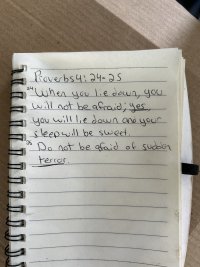 Proverbs 4:24-25
24 When you lie down, you
will not be afraid; yes,
you will lie down one your
sleep will be sweet.
25 Do not be afaid of sudden
terror.